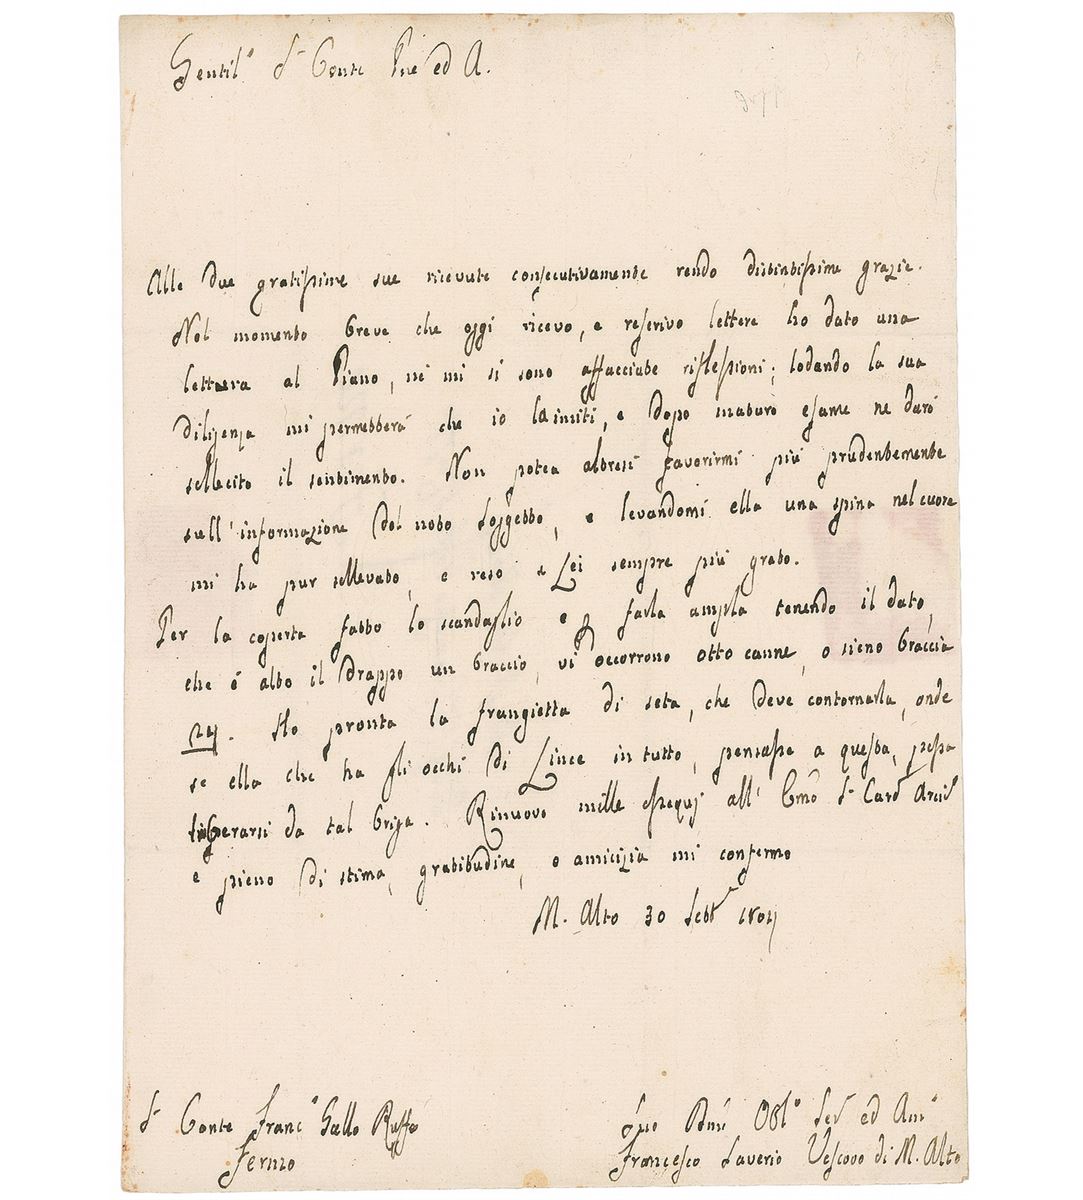 Gentil.º Sr Conte Pne ed A.
Alle due gratissime sue ricevute consecutivamente rendo distintissime grazie.
Nel momento breve che oggi ricevo, e rescrivo lettere ho dato una
lettura al Piano, nè mi si sono affacciate riflessioni; lodando la sua
diligenza mi permetterà che io la imiti, e dopo maturo esame ne darò
sollecito il sentimento. Non potea altresì favorirmi più prudentemente
sull' informazione del noto Soggetto, e levandomi ella una spina nel cuore
mi ha pur sollevato, e reso a Lei sempre più grato.
Per la coperta fatto lo scandaglio e farla ampla tenendo il dato,
che è alto il Drappo un braccio, vi occorrono otto canne, o sieno braccia
24. Ho pronta la frangietta di seta, che deve contornarla, onde
se ella che ha gli occhi di Lince in tutto, pensasse a questa,
liberarsi da tal briga. Rinnovo mille ossequj all' Emo Sr Card Arciv
e pieno di stima, gratitudine, e amicizia mi confermo
M. Alto 30 Settr 1804
Sr Conte Franc.º Gallo Ruffo
Fermo
Suo Dmo Obl.º Ser ed Am.º
Francesco Saverio Vescovo di M. Alto